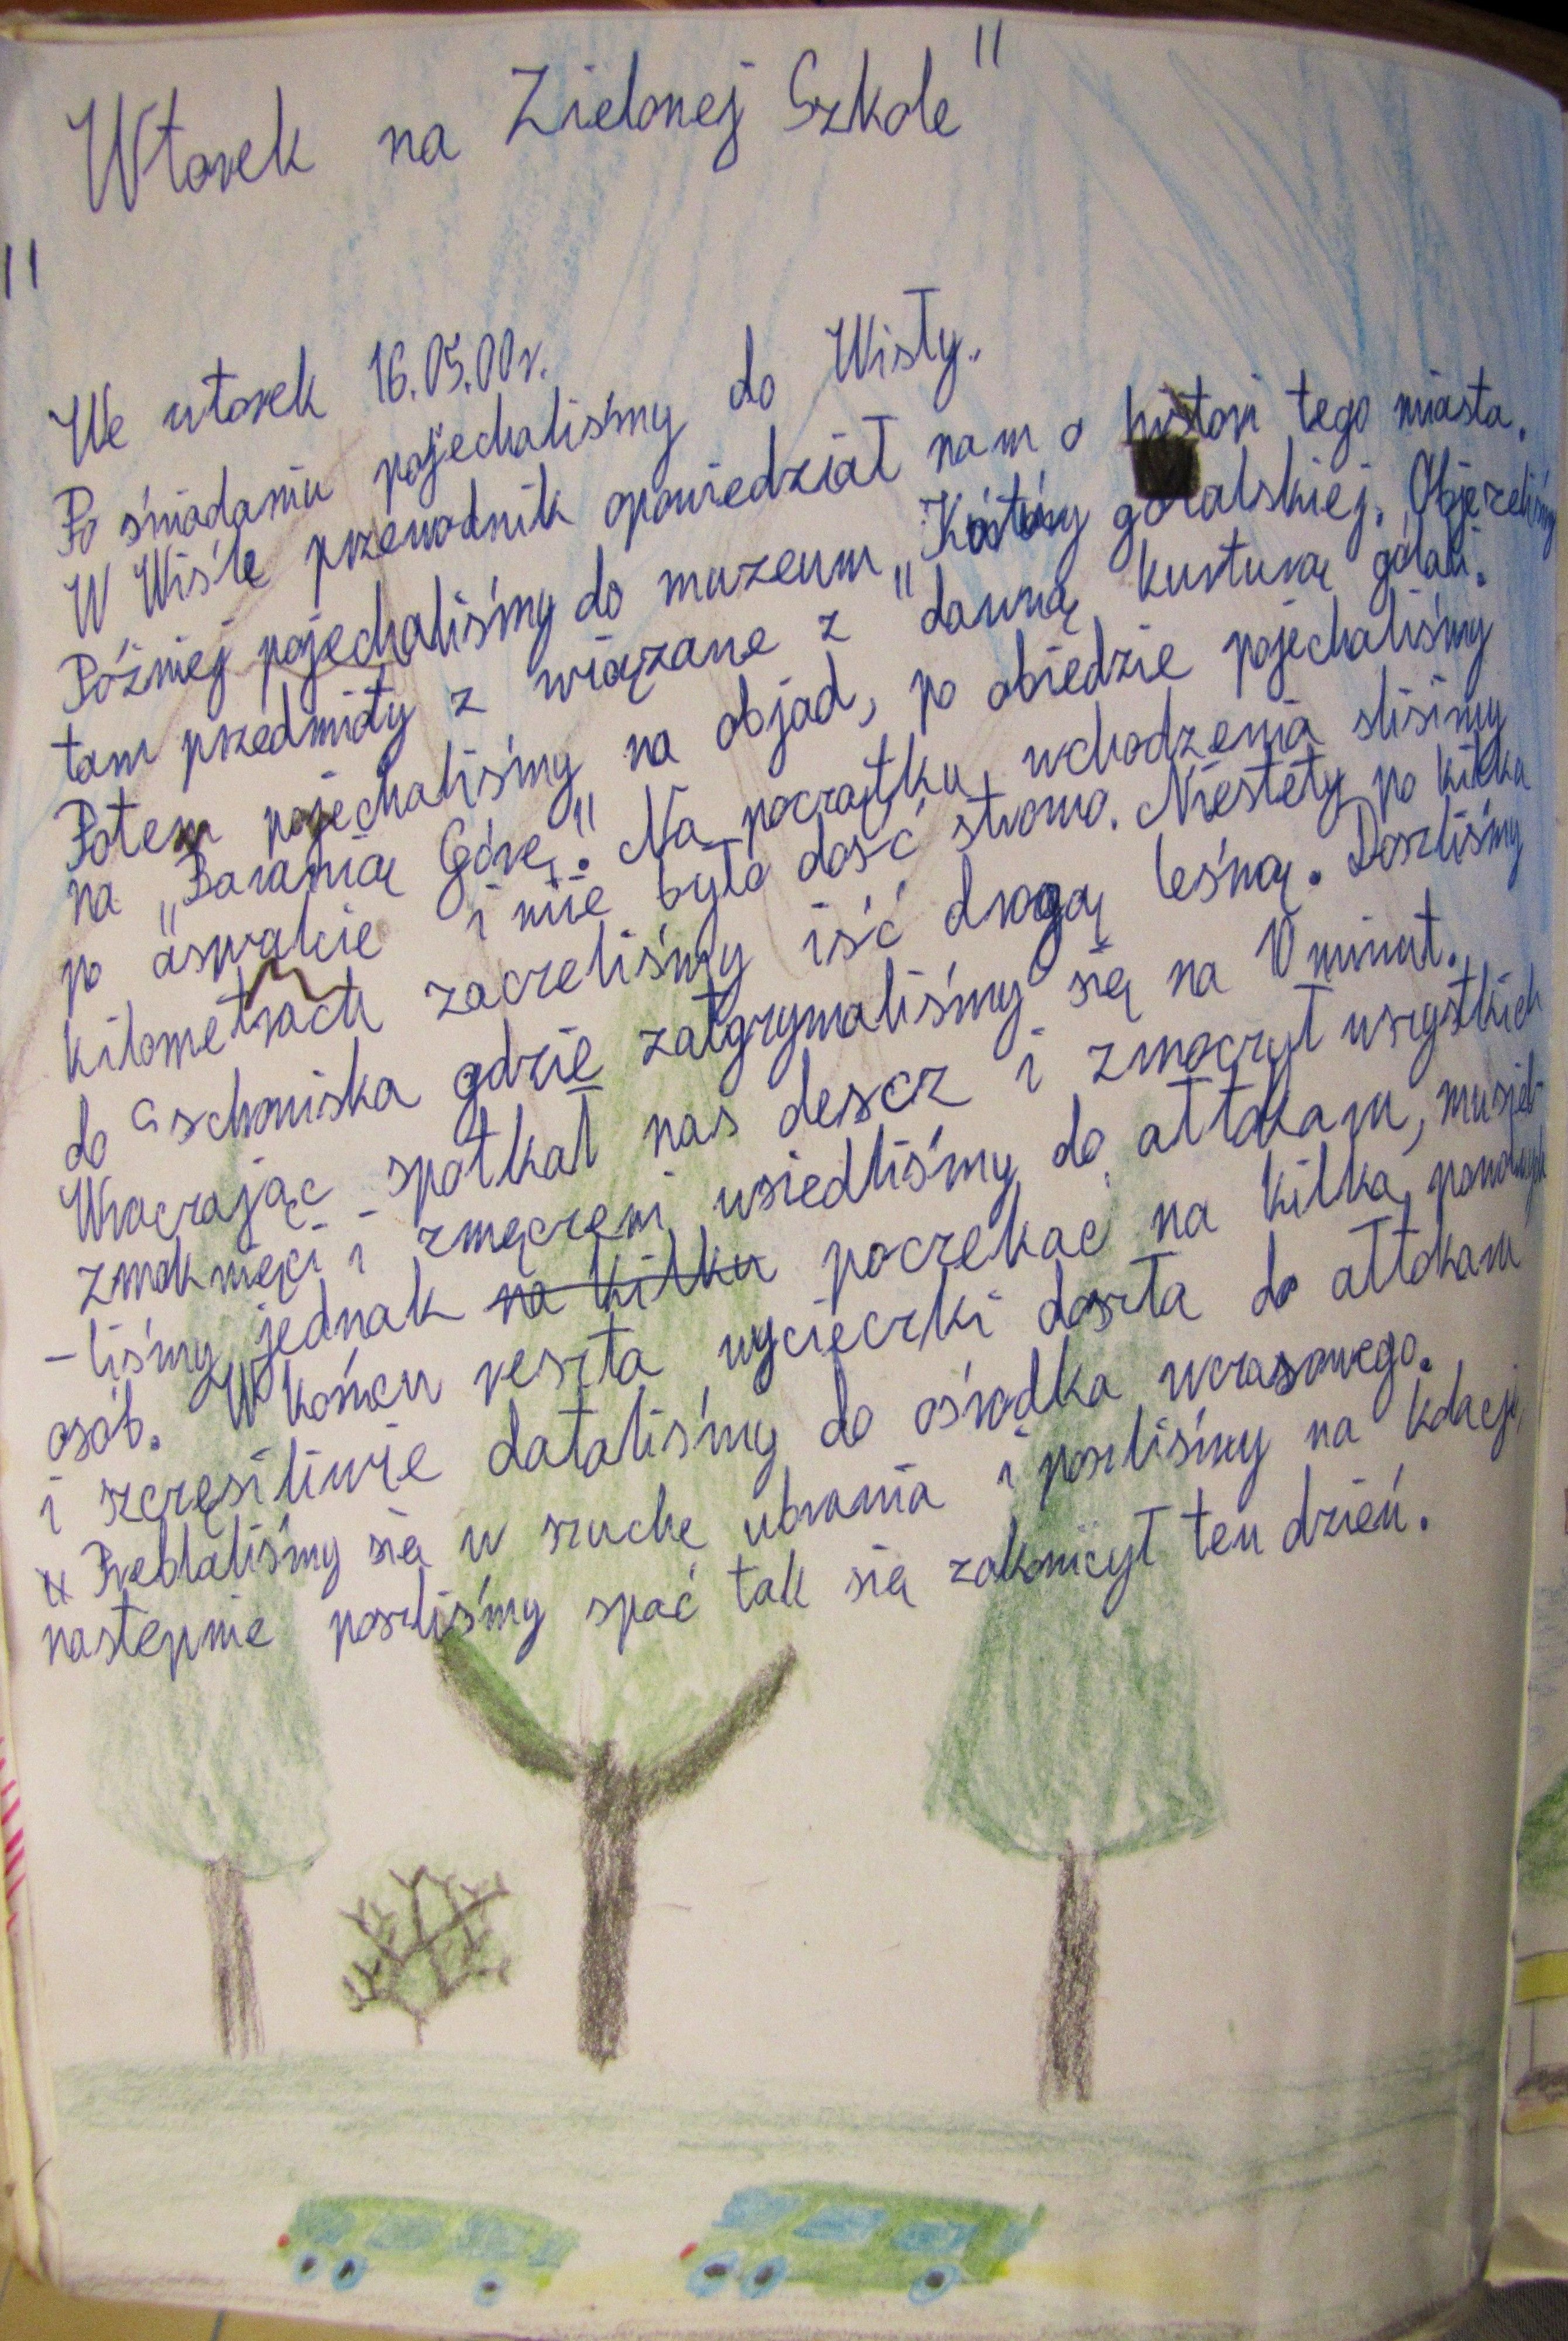 "Wtorek na Zielonej Szkole"
We wtorek 16.05.00r.
Po śniadaniu pojechaliśmy do Wisły.
W Wiśle przewodnik opowiedział nam o histori tego miasta.
Później pojechaliśmy do muzeum „ góralskiej. Objerzeliśmy
tam przedmioty z wiązane z "dawną kurturą górali.
Potem pojechaliśmy na objad, po obiedzie pojechaliśmy
na „Baranią Górę." Na początku wchodzenia sliśimy
po aswalcie i nie było dość stromo. Niestety po kilku
kilometrach zaczeliśmy iść drogą leśną. Doszliśmy
do schoniska gdzie zatgrymaliśmy się na 10 minut.
Wraczając spotkał nas descz i zmoczył wszystkich
zmoknięci i zmęczeni wsiedliśmy do ałtokaru, musied-
-liśmy jednak na kilku poczekać na kilka
osób. W końcu reszta wycieczki doszła do ałtokaru
i szczęsiliwie dotaliśmy do ośrodka wczasowego.
Przeblaliśmy się w szuche ubrania i poszliśmy na kolacje,
nastepnie poszliśmy spać tak się zakonicył ten dzień.